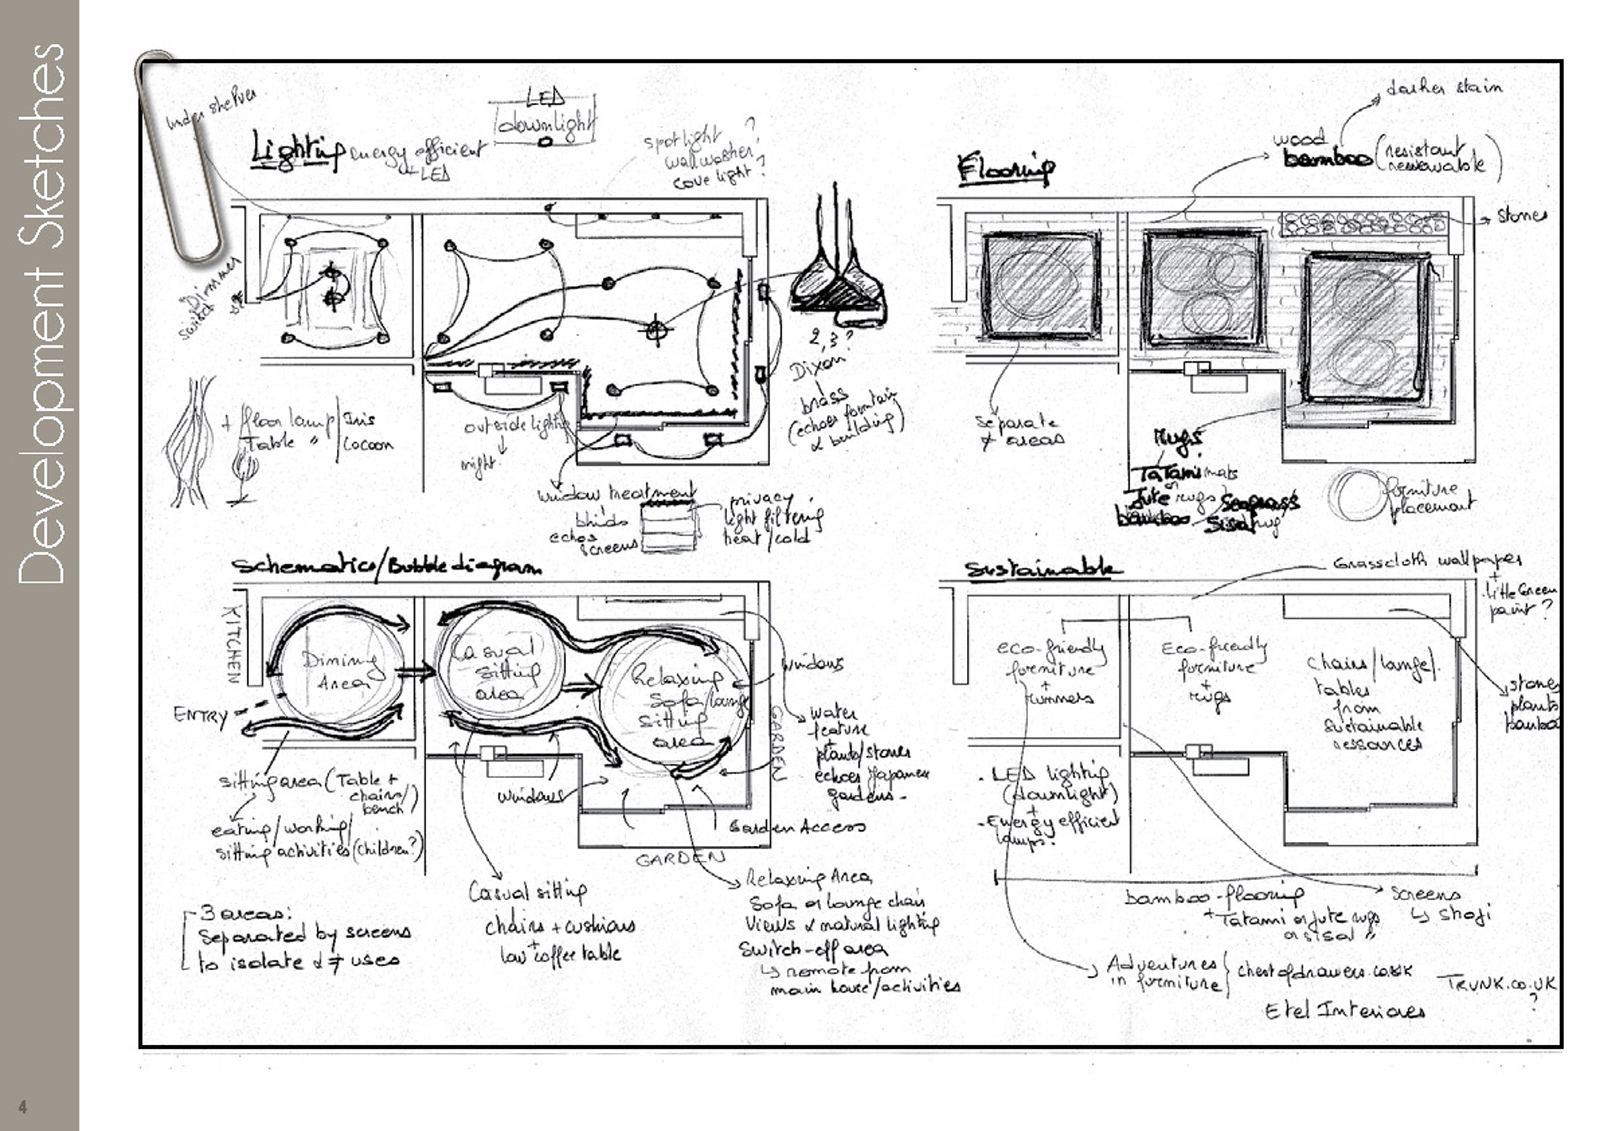 Development Sketches
under shelves
Lighting energy efficient
+ LED
LED
downlight
spotlight ?
wallwasher?
cove light?
Dimmer
switch
2, 3?
Dixon
brass
(echoes fountain
& building)
+ floor lamp / Iris
Table " / Cocoon
outside lighting
night.
window treatment
blinds
echos
screens
privacy
light filtering
heat/cold
Flooring
wood
bamboo (resistant
renewable)
darker stain
stones
Separate
≠ areas
Rugs
Tatami mats
or
Jute rugs
bamboo
Seagrass
Sisal rug
furniture
placement
Schematics/Bubble diagram
KITCHEN
Dining
Area
Casual
Sitting
area
Relaxing
Sofa/lounge
Sitting
area
ENTRY
windows
water
feature
+
plants/stones
echoes Japanese
gardens-
GARDEN
windows
Garden Access
GARDEN
sitting area (Table +
chairs/
bench)
eating/working/
sitting activities (children?)
3 areas:
Separated by screens
to isolate & ≠ uses
Casual sitting
chairs + cushions
+
low coffee table
Relaxing Area
Sofa or lounge chair
Views & natural lighting
Switch-off area
↳ remote from
main house/activities
Sustainable
Grasscloth wallpaper
+
Little Green
paint?
eco-friendly
furniture
+
runners
Eco-friendly
furniture
+
rugs
Chairs/lounge/
tables
from
Sustainable
ressources
stones
plants
bamboo
- LED lighting
(downlight)
+
- Energy efficient
lamps?
bamboo-flooring
+ Tatami or jute rugs
or sisal "
Screens
↳ Shoji
Adventures
in furniture } chestofdrawers.co.uk
TRUNK.co.UK
?
Etel Interiores
4